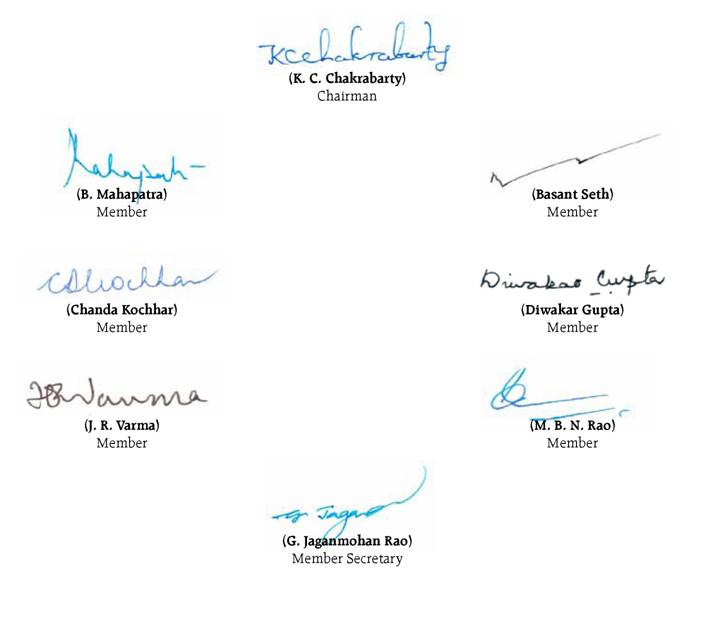 KCChakrabarty
(K. C. Chakrabarty)
Chairman
Mahapatra
(B. Mahapatra)
Member
(Basant Seth)
Member
CDKochhar
(Chanda Kochhar)
Member
Diwakar Gupta
(Diwakar Gupta)
Member
JRVarma
(J. R. Varma)
Member
(M. B. N. Rao)
Member
(G. Jaganmohan Rao)
Member Secretary